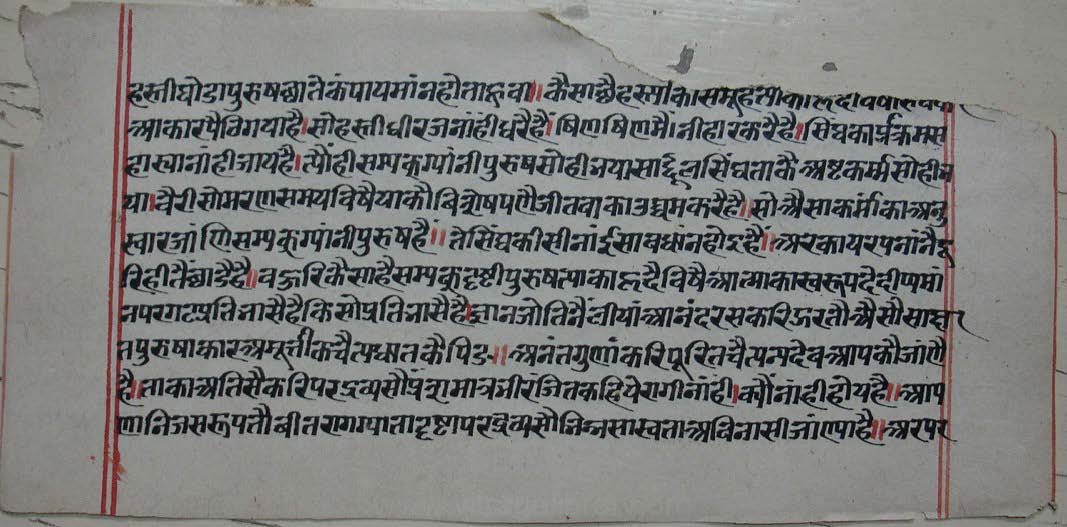 हस्तीघोडापुरुषछातेकंपायमांनहोताहूवा॥कैसाछैहस्तीकासमूह
आकारपैविगयाहै।सोहस्तीधीरजनांहीधरैहैं।षिणषिणमैंनीहारकरैहै।सिंघका
हास्वानांहीजायहै।त्यौंहीसम्यकग्यांनीपुरुषसोहीनयासार्दूलसिंघताकैअष्टकर्म्मसोही
या।वैरीसोमरणसमयविषैयाकौविशेषपणैजीतवाकाउद्यमकरैहै।सोअैसाकर्माकाअनु
स्वारजांणिसम्यकग्यांनीपुरुषहै॥तेसिंघकीसीनांईसावधांनहोइहै॥अरकायरपनांनैदू
रिहीतैंछाडैहै॥बहुरिकैसाहैसम्यकदृष्टीपुरुषत्याकाहृदैविषैआत्माकास्वरूपदेदीप्पमां
नपरगटप्रतिभासैहैकिसोप्रतिभासैहै।ज्ञानजोतिनैंलीयांआनंदरसकरिझरतौअैसौसाक्षा
तपुरुषाकारअमूर्तीकचैत्यधातकैपिंड॥अनंतगुणांकरिपूरितचैत्यन्यदेवआपकौजांणै
है॥ताकाअतिसैकरिपरद्रव्यसौंअंशमात्रभीरंजितकहियेरागीनांही।क्यौंनांहीहोयहै॥आप
णांनिजसरूपतौवीतरागग्यातादृष्टापरद्रव्यसौभिन्नसास्वताअविनासीजांण्याहै॥अरपर